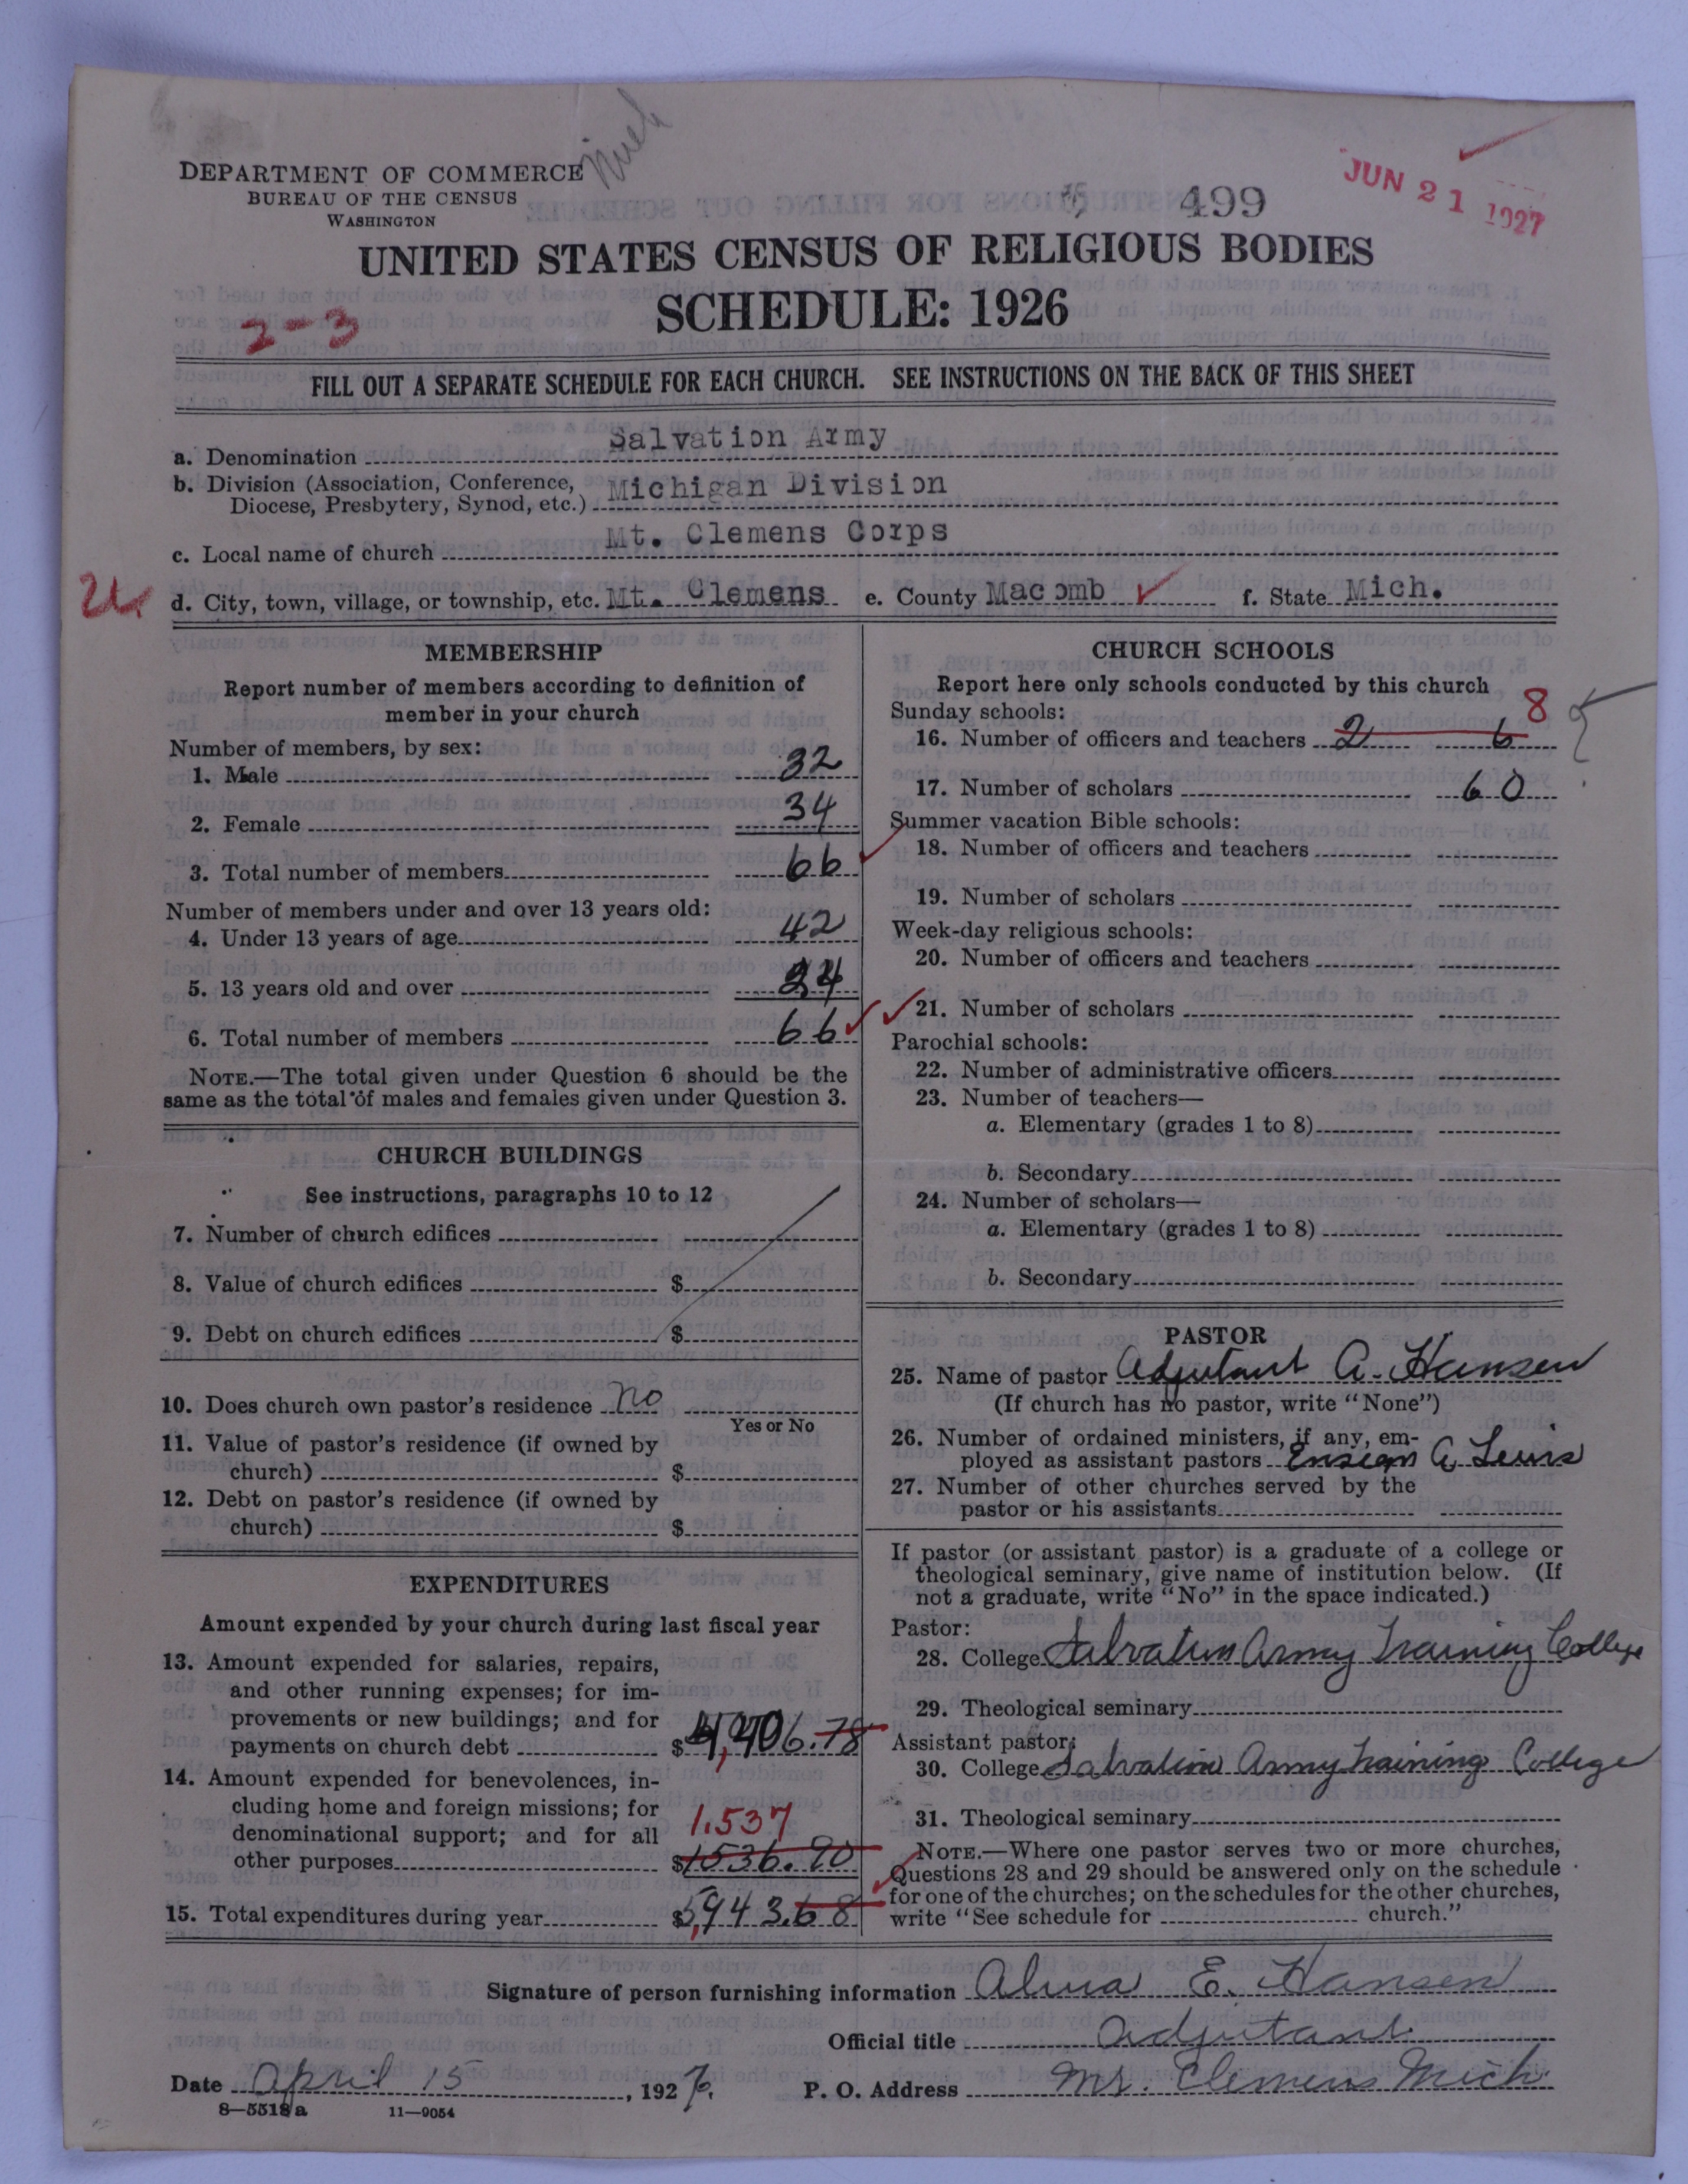 Mich
DEPARTMENT OF COMMERCE
BUREAU OF THE CENSUS
WASHINGTON
499
JUN 21 1927
UNITED STATES CENSUS OF RELIGIOUS BODIES
SCHEDULE: 1926
2-3
FILL OUT A SEPARATE SCHEDULE FOR EACH CHURCH. SEE INSTRUCTIONS ON THE BACK OF THIS SHEET
a. Denomination Salvation Army
b. Division (Association, Conference, Diocese, Presbytery, Synod, etc.) Michigan Division
c. Local name of church Mt. Clemens Corps
d. City, town, village, or township, etc. Mt. Clemens e. County Macomb f. State Mich.
MEMBERSHIP
Report number of members according to definition of
member in your church
Number of members, by sex:
1. Male 32
2. Female 34
3. Total number of members 66
Number of members under and over 13 years old:
4. Under 13 years of age 42
5. 13 years old and over 24
6. Total number of members 66
NOTE.—The total given under Question 6 should be the
same as the total of males and females given under Question 3.
CHURCH BUILDINGS
See instructions, paragraphs 10 to 12
7. Number of church edifices
8. Value of church edifices $
9. Debt on church edifices $
10. Does church own pastor's residence no
Yes or No
11. Value of pastor's residence (if owned by
church) $
12. Debt on pastor's residence (if owned by
church) $
EXPENDITURES
Amount expended by your church during last fiscal year
13. Amount expended for salaries, repairs,
and other running expenses; for im-
provements or new buildings; and for
payments on church debt $4,406.78
14. Amount expended for benevolences, in-
cluding home and foreign missions; for
denominational support; and for all 1,537
other purposes $1536.90
15. Total expenditures during year $5,943.68
CHURCH SCHOOLS
Report here only schools conducted by this church
Sunday schools: 8
16. Number of officers and teachers 2 6
17. Number of scholars 60
Summer vacation Bible schools:
18. Number of officers and teachers
19. Number of scholars
Week-day religious schools:
20. Number of officers and teachers
21. Number of scholars
Parochial schools:
22. Number of administrative officers
23. Number of teachers—
a. Elementary (grades 1 to 8)
b. Secondary
24. Number of scholars—
a. Elementary (grades 1 to 8)
b. Secondary
PASTOR
25. Name of pastor Adjutant A. Hansen
(If church has no pastor, write "None")
26. Number of ordained ministers, if any, em-
ployed as assistant pastors Ensign A Lewis
27. Number of other churches served by the
pastor or his assistants
If pastor (or assistant pastor) is a graduate of a college or
theological seminary, give name of institution below. (If
not a graduate, write "No" in the space indicated.)
Pastor:
28. College Salvation Army Training College
29. Theological seminary
Assistant pastor:
30. College Salvation Army Training College
31. Theological seminary
NOTE.—Where one pastor serves two or more churches,
Questions 28 and 29 should be answered only on the schedule
for one of the churches; on the schedules for the other churches,
write "See schedule for church."
Signature of person furnishing information Alma E. Hansen
Official title Adjutant
Date April 15, 1927. P. O. Address Mt. Clemens Mich.
8—5518a 11—9054